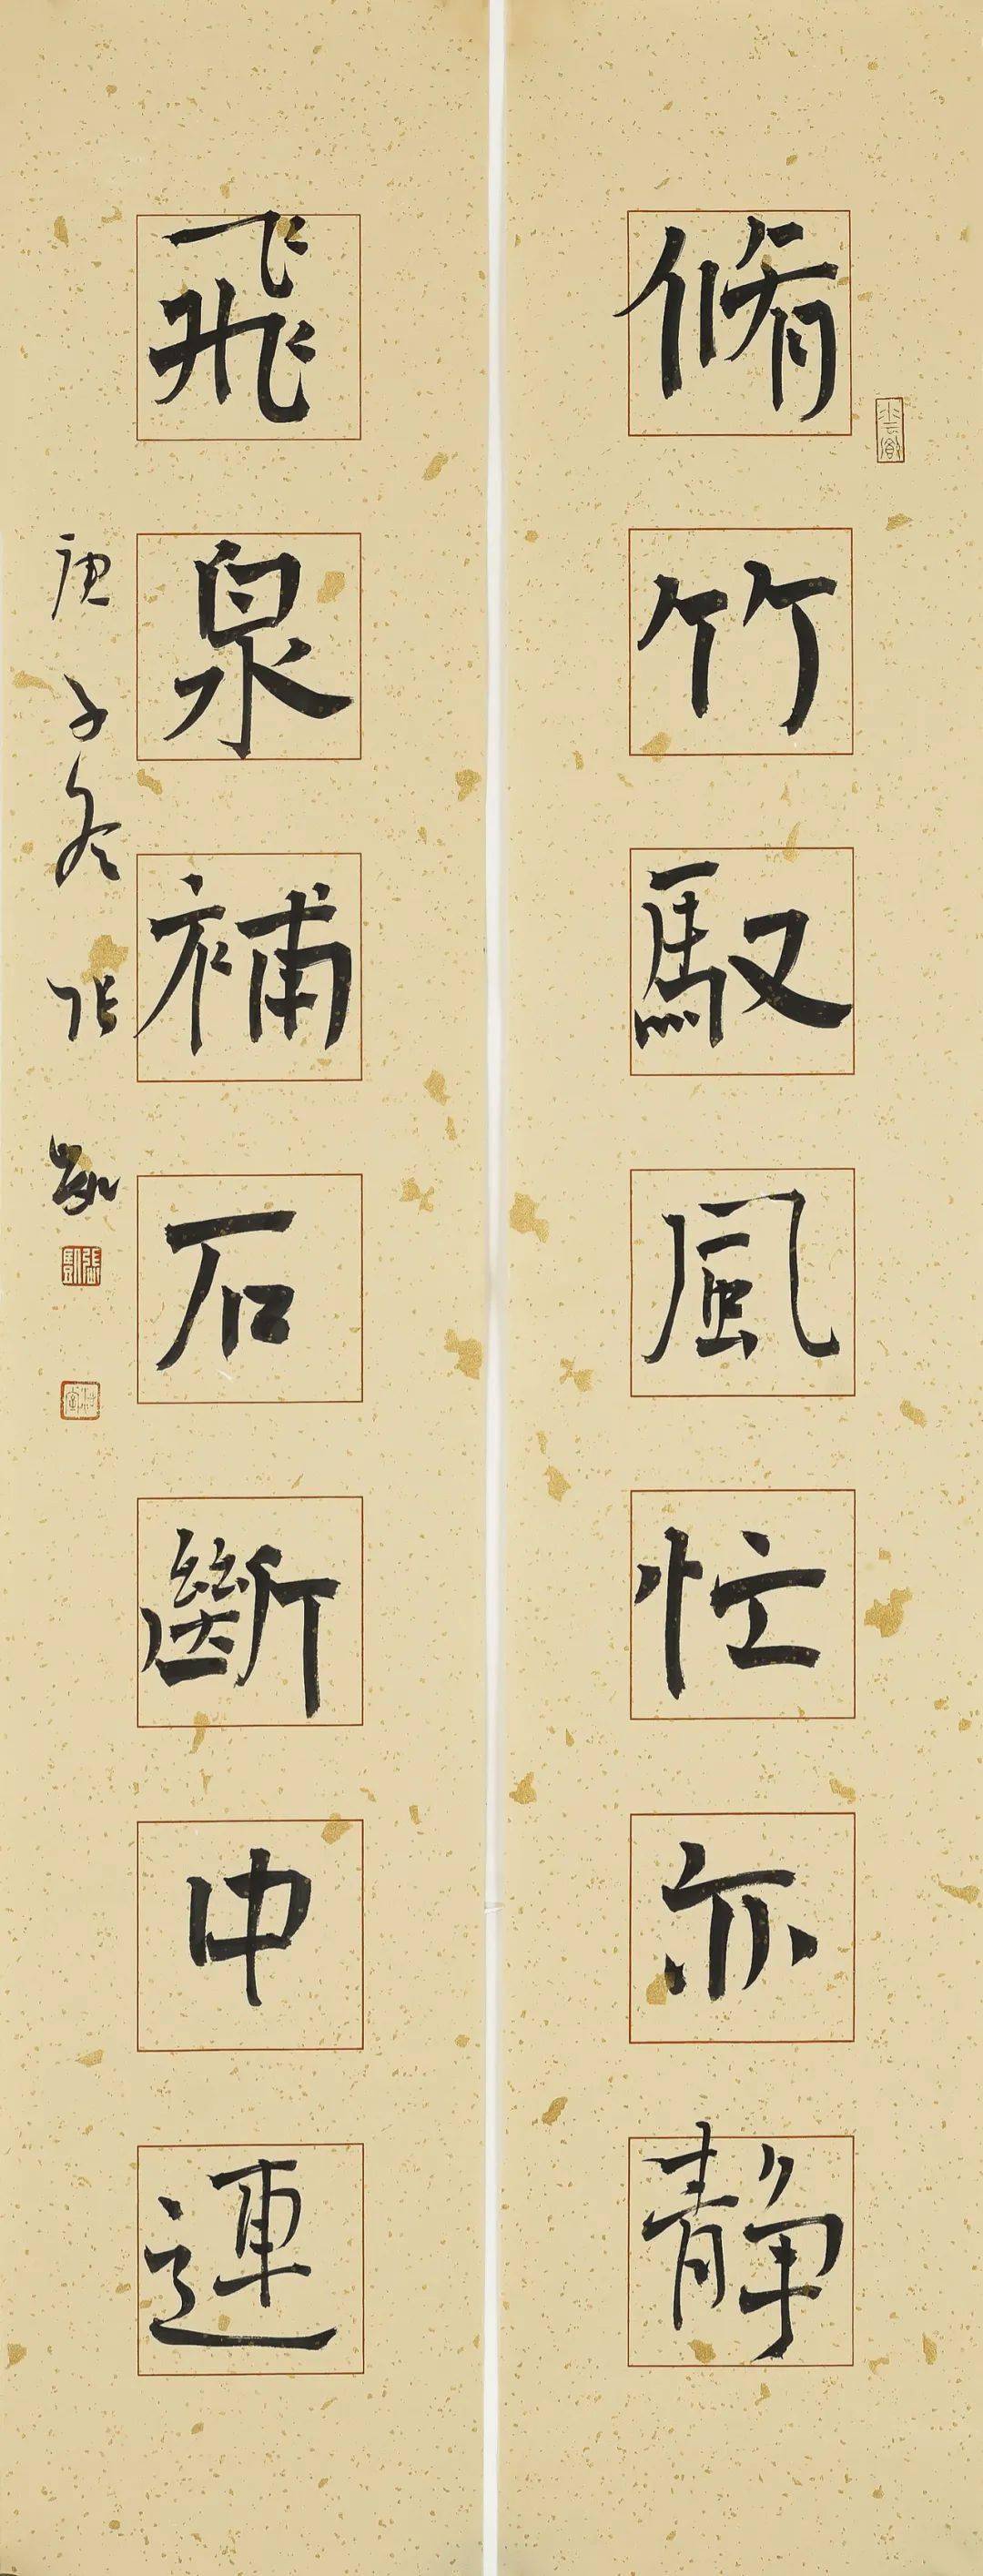 脩竹馭風忙亦靜
飛泉補石斷中連
庚子冬 張